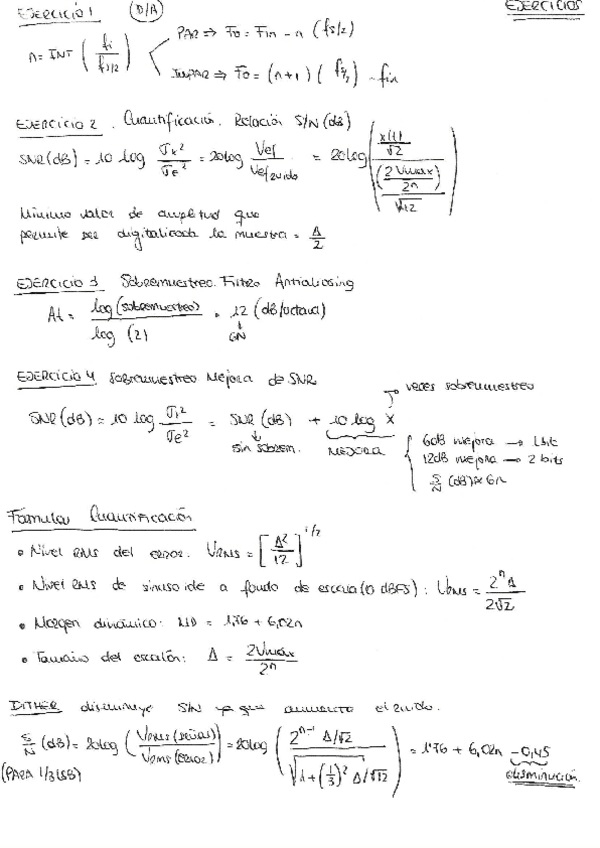 EJERCICIO 1 (D/A) EJERCICIOS
n = INT (fi / fs/2) PAR ⇒ Fo = Fin - n (fs/2)
IMPAR ⇒ Fo = (n+1) (fs/2) - fin
EJERCICIO 2. Cuantificación. Relación S/N (dB)
SNR(dB) = 10 log σx²/σe² = 20log Vef/Vef ruido = 20log ( (x(t)/√2) / ((2Vmax/2n)/√12) )
Mínimo valor de amplitud que
permite ser digitalizada la muestra = Δ/2
EJERCICIO 3 Sobremuestreo. Filtro Antialiasing
At = log(sobremuestreo)/log (2) · 12 (dB/octava)
6N
EJERCICIO 4 Sobremuestreo Mejora de SNR
veces sobremuestreo
SNR(dB) = 10 log σx²/σe² = SNR (dB) + 10 log X
sin sobrem. MEJORA
6dB mejora → 1 bit
12dB mejora → 2 bits
S/N (dB) ≈ 6n
Fórmulas Cuantificación
• Nivel RMS del error: VRMS = [Δ²/12]^1/2
• Nivel RMS de sinusoide a fondo de escala (0 dBFS): VRMS = 2^n Δ/2√2
• Margen dinámico: MD = 1,76 + 6,02n
• Tamaño del escalón: Δ = 2Vmax/2^n
DITHER disminuye S/N ya que aumenta el ruido.
S/N (dB) = 20log (VRMS (señal)/VRMS (error)) = 20log ( 2^n-1 Δ/√2 / √1+(1/3)² Δ/√12 ) = 1'76 + 6,02n - 0,45
(PARA 1/3 LSB) disminución.